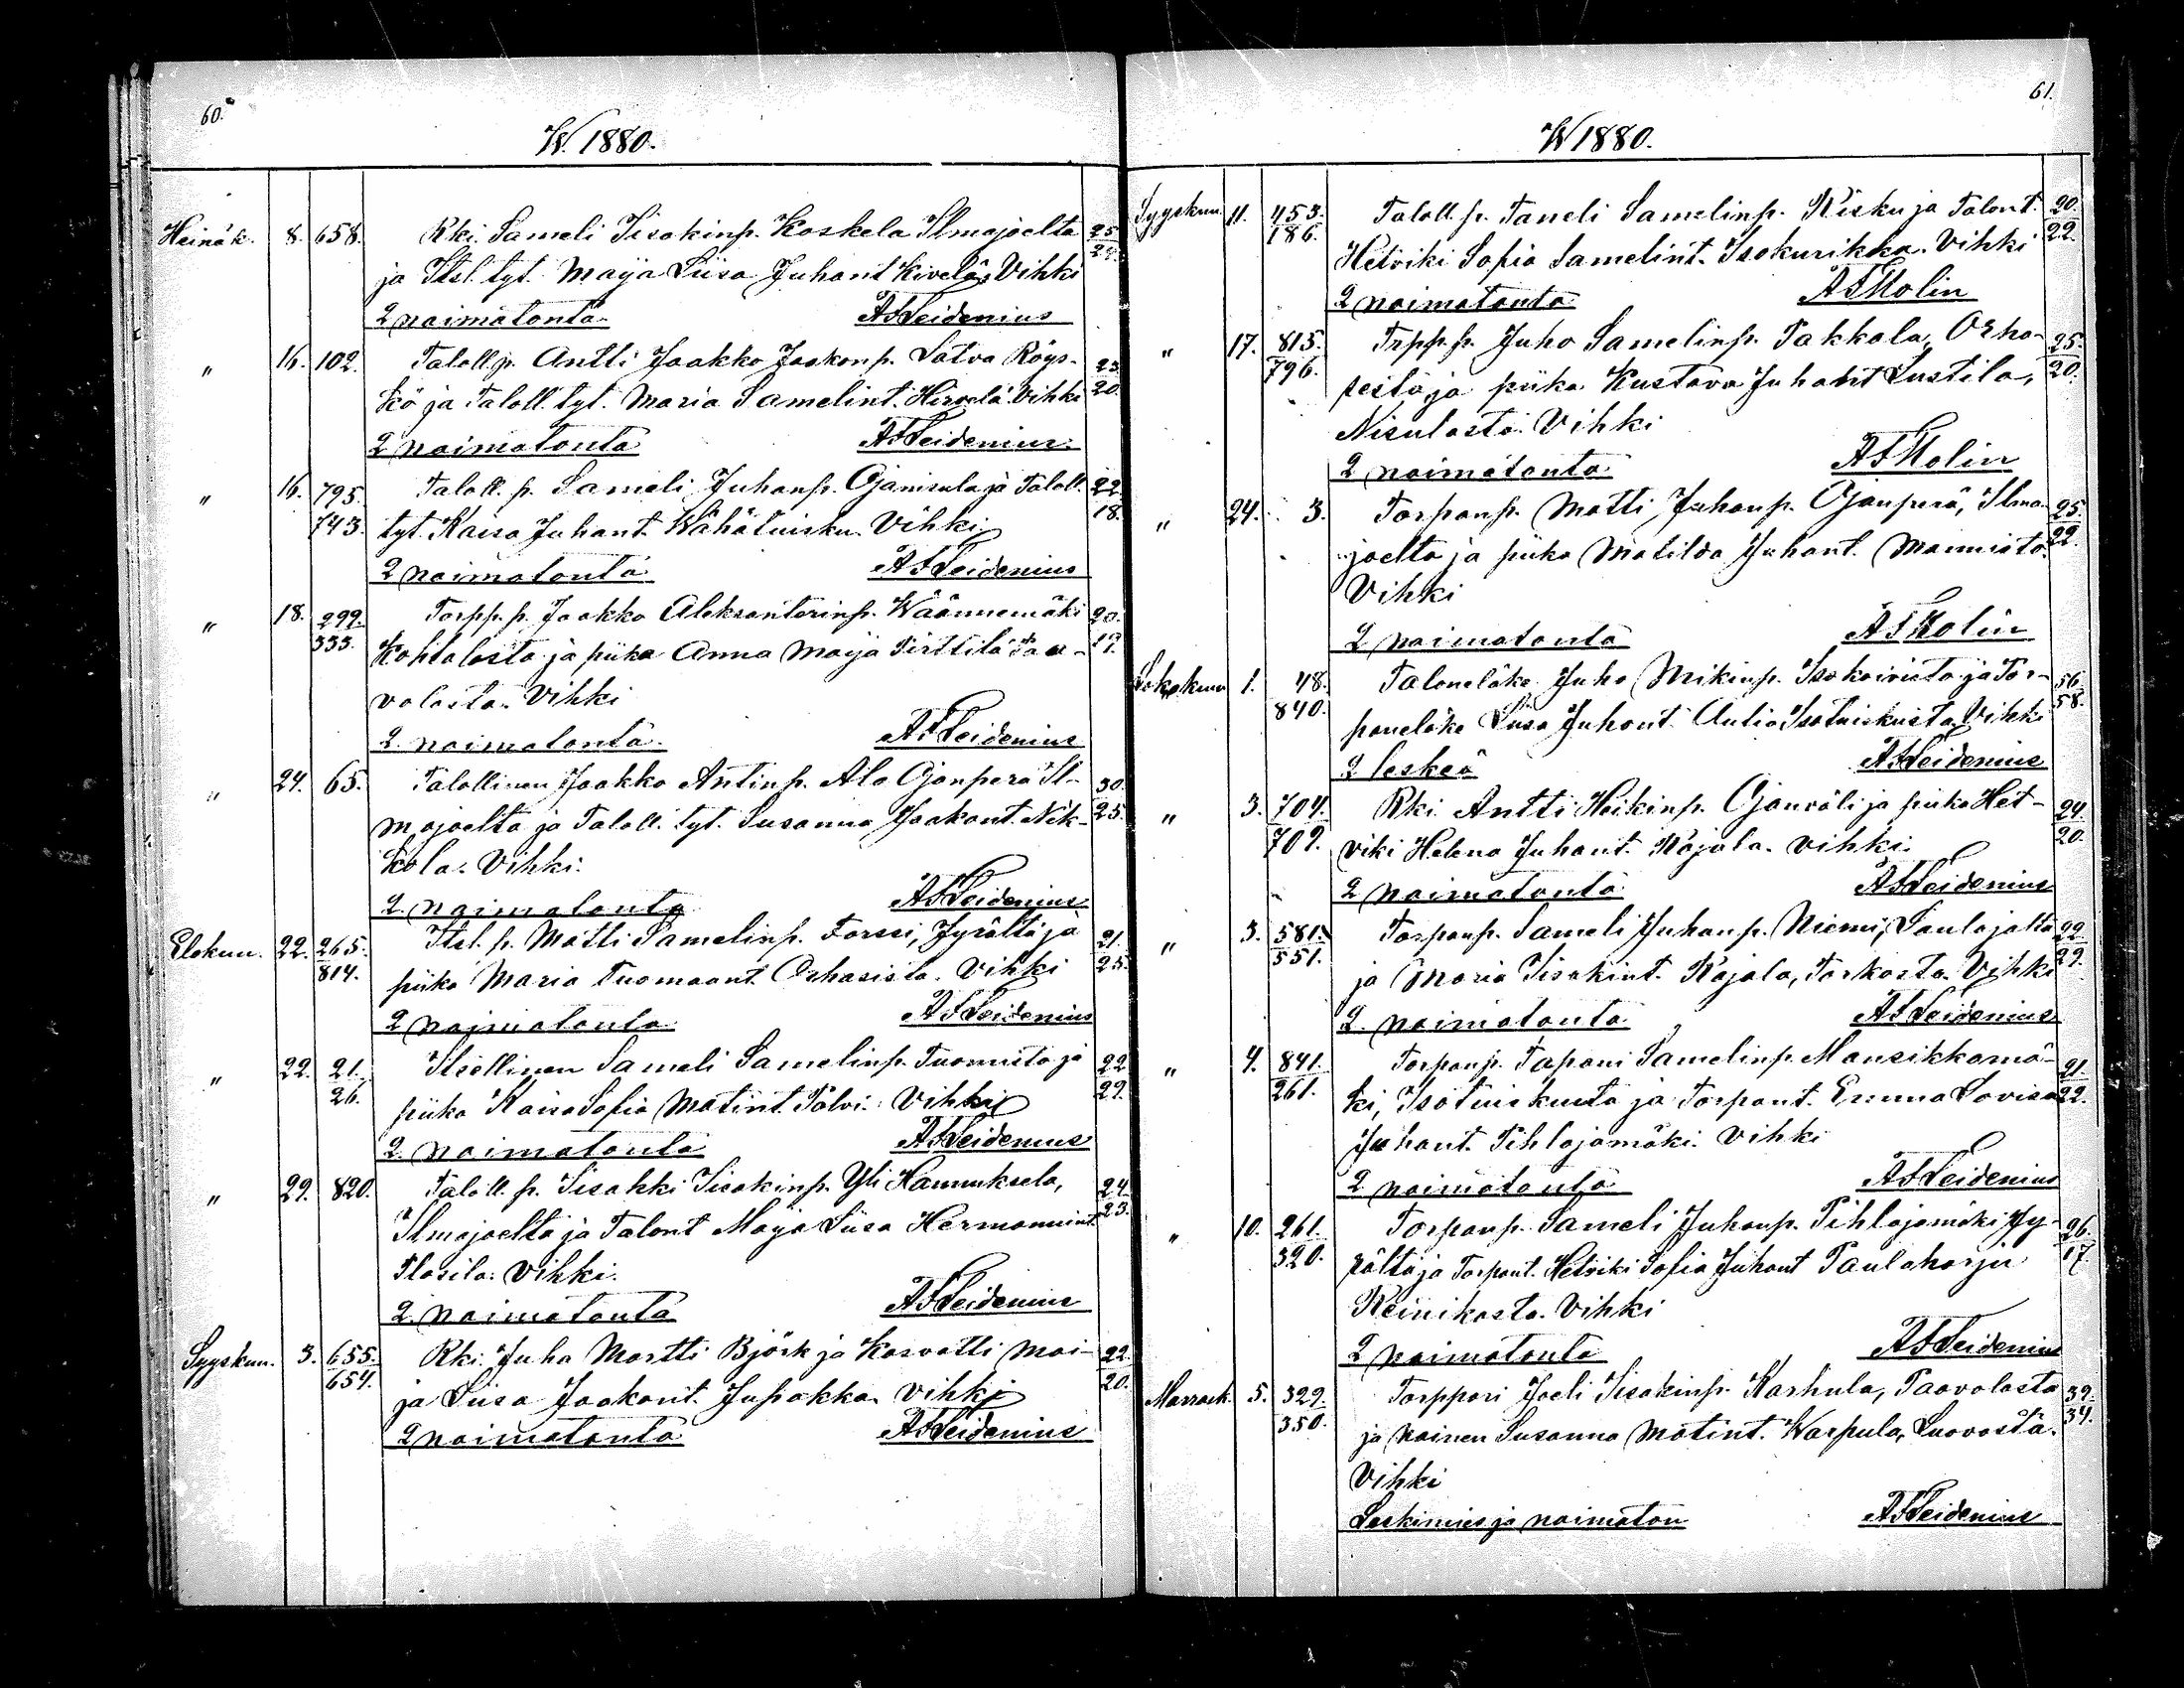 60.
W. 1880.
Heinäk. 8. 658. Rki. Sameli Iisakinp. Koskela Ilmajoelta 25
ja Itsl. tyt. Maija Liisa Juhant Kivelä. Vihki
2 naimatonta. A F Leidenius
" 16. 102. Taloll.p. Antti Jaakko Jaakonp. Latva Röys- 23
kö ja Taloll. tyt. Maria Samelint. Hirvelä. Vihki 20.
2 naimatonta A F Leidenius
" 16. 795. Taloll. p. Sameli Juhanp. Ojanisula ja Taloll. 22.
743. tyt. Kaisa Juhant. Wähätuisku. Vihki 18.
2 naimatonta A F Leidenius
" 18. 299. Torpp. p. Jaakko Aleksanterinp. Wäännemäki 20.
353. Kohtalosta ja piika Anna Maija Pirttilä Paa- 19.
volasta. Vihki
2. naimatonta. A F Leidenius
" 24. 65. Talollinen Jaakko Antinp. Ala Ojanperä Il- 30.
majoelta ja Taloll. tyt. Susanna Jaakont. Nik- 25.
kola. Vihki.
2. naimatonta A F Leidenius
Elokuu. 22. 265. Itsl. p. Matti Samelinp. Forssi, Jyrältä ja 21.
814. piika Maria Tuomaant. Orhasista. Vihki 25.
2 naimatonta A F Leidenius
" 22. 21. Itsellinen Sameli Samelinp. Tuomisto ja 22
26. piika Kaisa Sofia Matint. Palvi. Vihki 29.
2. naimatonta A F Leidenius
" 29. 820. Taloll. p. Iisakki Iisakinp. Yli Hannuksela, 24.
Ilmajoelta ja Talont Maija Liisa Hermannint. 23.
Plosila. Vihki.
2. naimatonta A F Leidenius
Syyskuu. 3. 655. Rki. Juha Martti Björk ja Kasvatti Mai- 22.
654. ja Liisa Jaakont. Jupakka. Vihki 20.
2 naimatonta A F Leidenius
61.
W 1880.
Syyskuu. 11. 453. Taloll. p. Taneli Samelinp. Risku ja Talont. 20.
186. Hetviki Sofia Samelint. Isokurikka. Vihki 22.
2 naimatonta A F Molin
" 17. 815. Trpp. p. Juho Samelinp. Pakkala, Orha- 25.
796. sesta ja piika Kustava Juhant Lustila, 20.
Nisulasta. Vihki
2 naimatonta. A F Molin
" 24. 3. Torpanp. Matti Juhanp. Ojanperä, Ilma- 25.
joelta ja piika Matilda Juhant. Mannisto. 22.
Vihki
2 naimatonta A F Molin
Lokakuu 1. 48. Taloneläke Juho Mikinp. Isokoivisto ja Tor- 56.
840. paneläke Liisa Juhont. Autio Isotuiskusta Vihki 58.
2 leskeä A F Leidenius
" 3. 704. Rki Antti Heikinp. Ojanväli ja piika Het- 24
709. viki Helena Juhant. Rajala. Vihki. 20.
2 naimatonta A F Leidenius
" 3. 581. Torpanp. Sameli Juhanp. Niemi, Paulajalta 22
551. ja Maria Iisakint. Rajala, Tarkasta. Vihki 29.
2. naimatonta A F Leidenius
" 4. 841. Torpanp. Tapani Samelinp. Mansikkamä- 21.
261. ki, Isotuiskusta ja Torpant. Emma Lovisa 22.
Juhant. Pihlajamäki. Vihki
2 naimatonta A F Leidenius
" 10. 261. Torpanp. Sameli Juhanp. Pihlajamäki Jy- 26.
320. rältä ja Torpant. Hetviki Sofia Juhant Paulaharju 17.
Reinikasta. Vihki
2 naimatonta A F Leidenius
Marrask. 5. 329. Torppari Joeli Iisakinp. Karhula, Paavolasta 39.
350. ja nainen Susanna Matint. Warpula, Luovasta. 34.
Vihki
Leskimies ja naimaton A F Leidenius